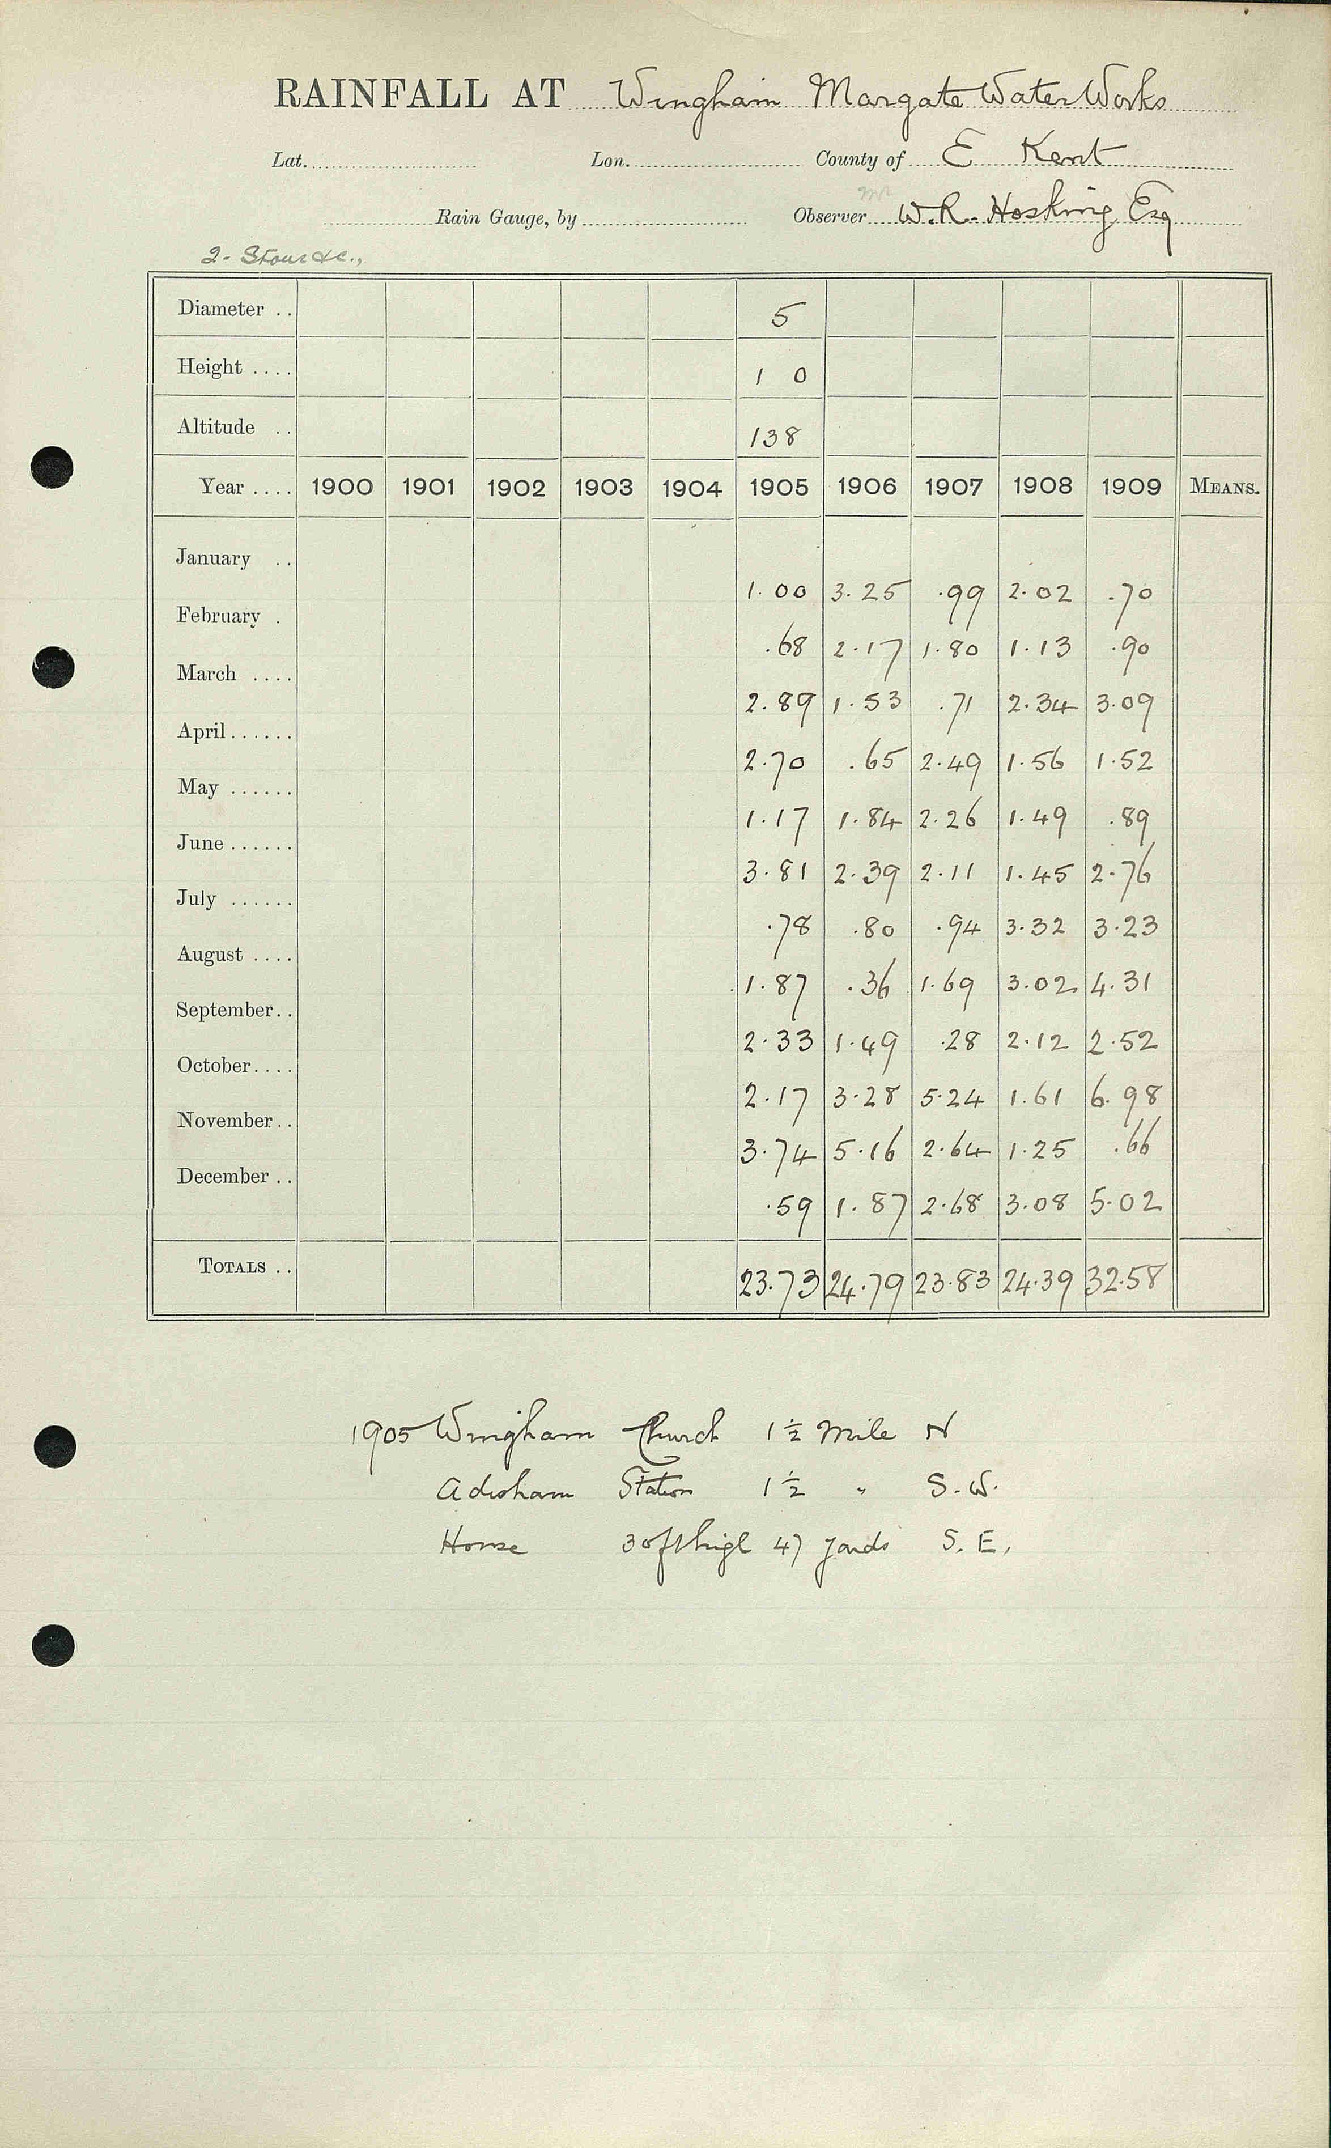 RAINFALL AT Wingham Margate Water Works
Lat. Lon. County of E Kent
Rain Gauge, by Observer W. R. Hosking Esq
2 - Stour &c.,
Diameter .. 5
Height .... 1 0
Altitude .. 138
Year .... 1900 1901 1902 1903 1904 1905 1906 1907 1908 1909 MEANS.
January .. 1.00 3.25 .99 2.02 .70
February . .68 2.17 1.80 1.13 .90
March .... 2.89 1.53 .71 2.34 3.09
April...... 2.70 .65 2.49 1.56 1.52
May ...... 1.17 1.84 2.26 1.49 .89
June...... 3.81 2.39 2.11 1.45 2.76
July ...... .78 .80 .94 3.32 3.23
August .... 1.87 .36 1.69 3.02 4.31
September.. 2.33 1.49 .28 2.12 2.52
October.... 2.17 3.28 5.24 1.61 6.98
November.. 3.74 5.16 2.64 1.25 .66
December .. .59 1.87 2.68 3.08 5.02
TOTALS .. 23.73 24.79 23.83 24.39 32.58
1905 Wingham Church 1½ Mile N
Adisham Station 1½ " S.W.
House 30 ft high 47 yards S.E.